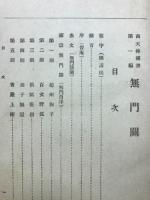 第一編
無門關
目次
題字
緒言
序(習庵)
表文(無門慧開)
禪宗無門關(無門自序)
第一則 趙州狗子
第二則 百丈野狐
第三則 俱胝竪指
第四則 胡子無鬚
第五則 香嚴上樹
目次